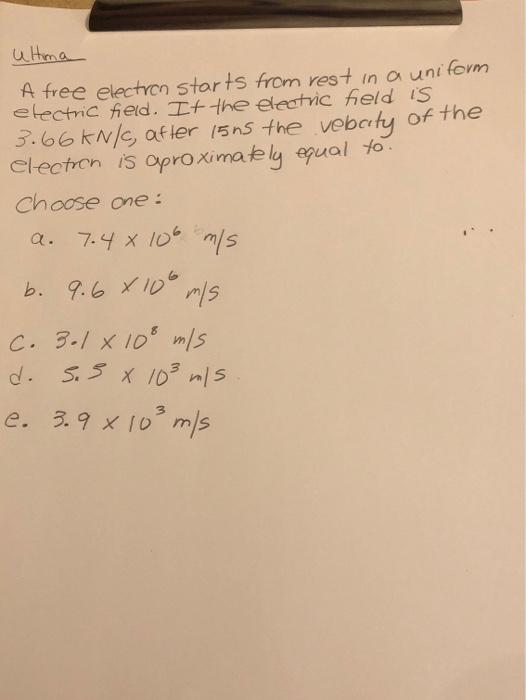 Ultima
A free electron starts from rest in a uniform
electric field. If the electric field is
3.66 kN/c, after 15ns the velocity of the
electron is aproximately equal to.
Choose one:
a. 7.4 x 10⁶ m/s
b. 9.6 x 10⁶ m/s
c. 3.1 x 10⁸ m/s
d. 5.5 x 10³ m/s
e. 3.9 x 10³ m/s